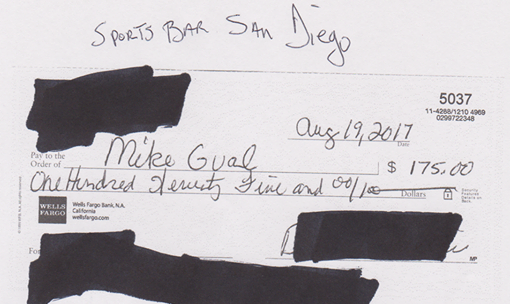 SPORTS BAR SAN DIEGO
5037
11-4288/1210 4969
0299722348
Aug 19, 2017
Date
Pay to the
Order of Mike Gual $ 175.00
One Hundred Seventy Five and 00/100 Dollars
Security
Features
Details on
Back.
WELLS
FARGO
Wells Fargo Bank, N.A.
California
wellsfargo.com
For
MP